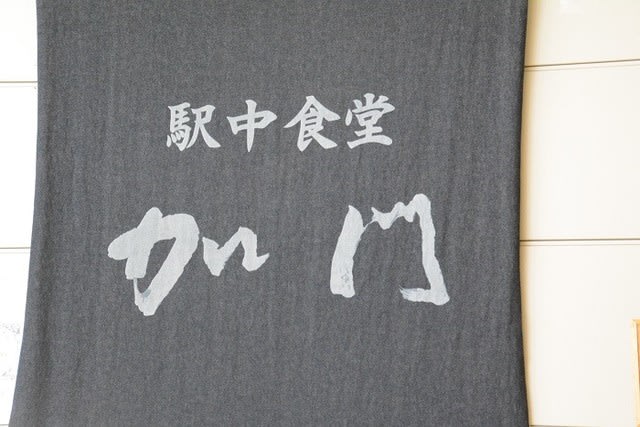 駅中食堂
加門